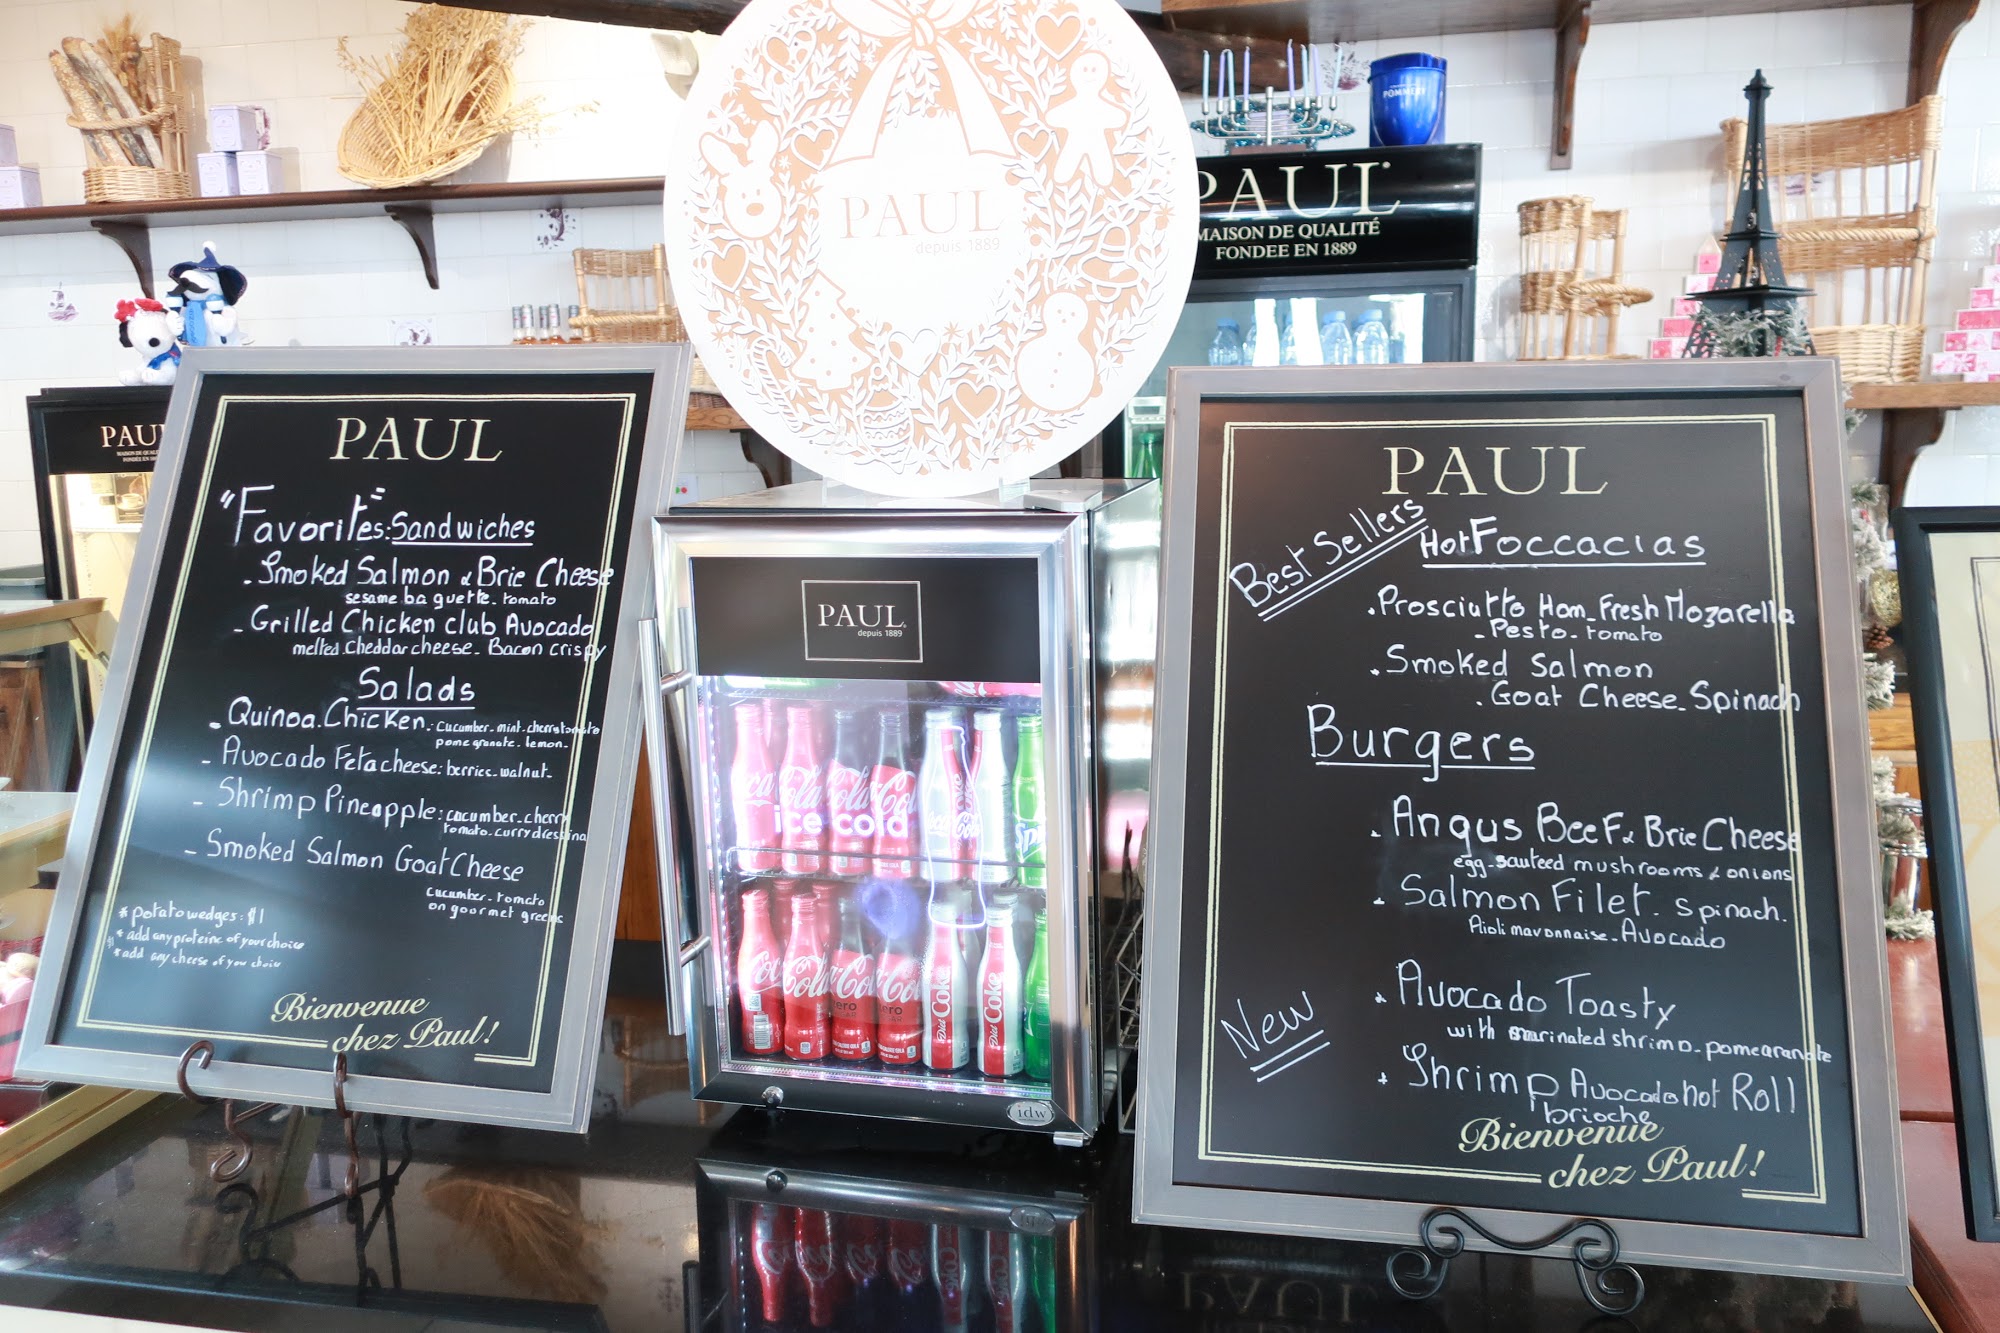 PAUL
"Favorites": Sandwiches
- Smoked Salmon & Brie Cheese
sesame baguette - tomato
- Grilled Chicken club Avocado
melted cheddar cheese - Bacon crispy
Salads
- Quinoa. Chicken: cucumber - mint - cherry tomato
pomegranate - lemon -
- Avocado Feta cheese: berries - walnut -
- Shrimp Pineapple: cucumber - cherry
tomato - curry dressing
- Smoked Salmon Goat Cheese
cucumber - tomato
on gourmet greens
* potato wedges: $1
* add any proteine of your choice
* add any cheese of your choice
Bienvenue
chez Paul!
PAUL
depuis 1889
PAUL
MAISON DE QUALITÉ
FONDEE EN 1889
POMMERY
PAUL
MAISON DE QUALITÉ
FONDÉE EN 1889
PAUL
depuis 1889
ice cold
Coca Cola
Diet Coke
Diet Coke
zero
idw
PAUL
Best Sellers
Hot Foccacias
. Prosciutto Ham - Fresh Mozarella
- Pesto - tomato
. Smoked Salmon
. Goat Cheese - Spinach
Burgers
. Angus Beef & Brie Cheese
egg - sauteed mushrooms & onions
- Salmon Filet. Spinach.
Aioli mayonnaise - Avocado
New
. Avocado Toasty
with marinated shrimp - pomegranate
. Shrimp Avocado Hot Roll
brioche
Bienvenue
chez Paul!